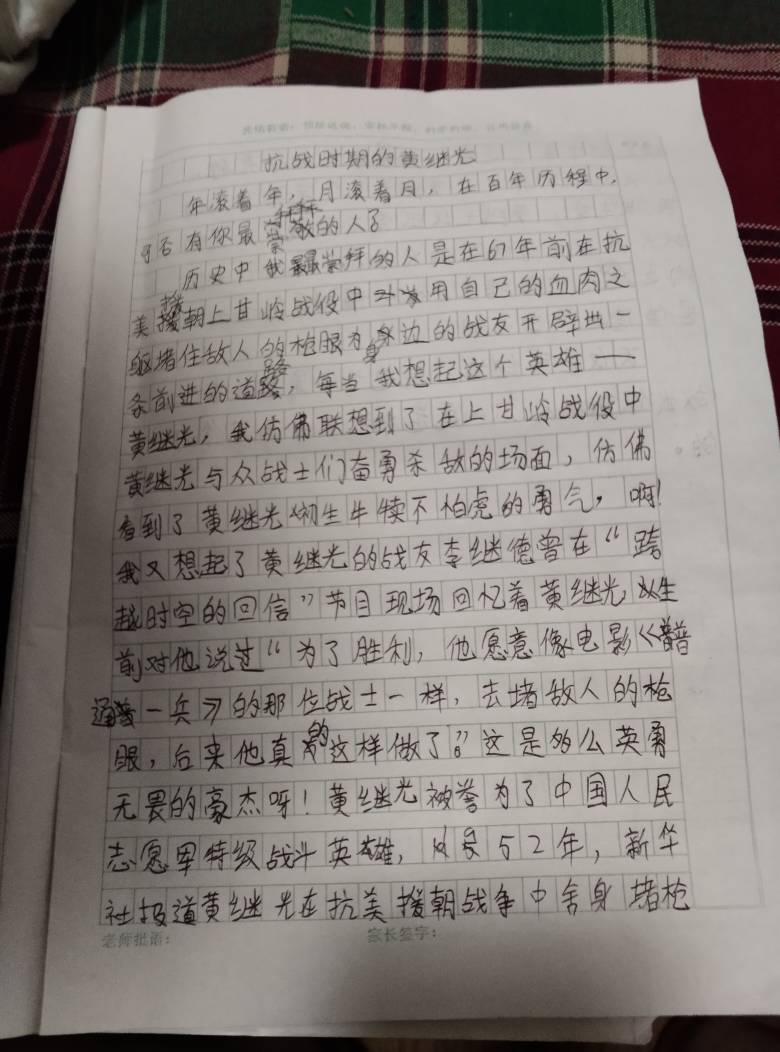 抗战时期的黄继光
年滚着年，月滚着月，在百年历程中，
可否有你最崇敬的人？
历史中我最崇拜的人是在67年前在抗
美援朝上甘岭战役中用自己的血肉之
躯堵住敌人的枪眼为身边的战友开辟出一
条前进的道路，每当我想起这个英雄——
黄继光，我仿佛联想到了在上甘岭战役中
黄继光与众战士们奋勇杀敌的场面，仿佛
看到了黄继光初生牛犊不怕虎的勇气，啊！
我又想起了黄继光的战友李继德曾在“跨
越时空的回信”节目现场回忆着黄继光生
前对他说过“为了胜利，他愿意像电影《普
通一兵》的那位战士一样，去堵敌人的枪
眼，后来他真的这样做了”。这是多么英勇
无畏的豪杰呀！黄继光被誉为了中国人民
志愿军特级战斗英雄，52年，新华
社报道黄继光在抗美援朝战争中舍身堵枪
老师批语： 家长签字：